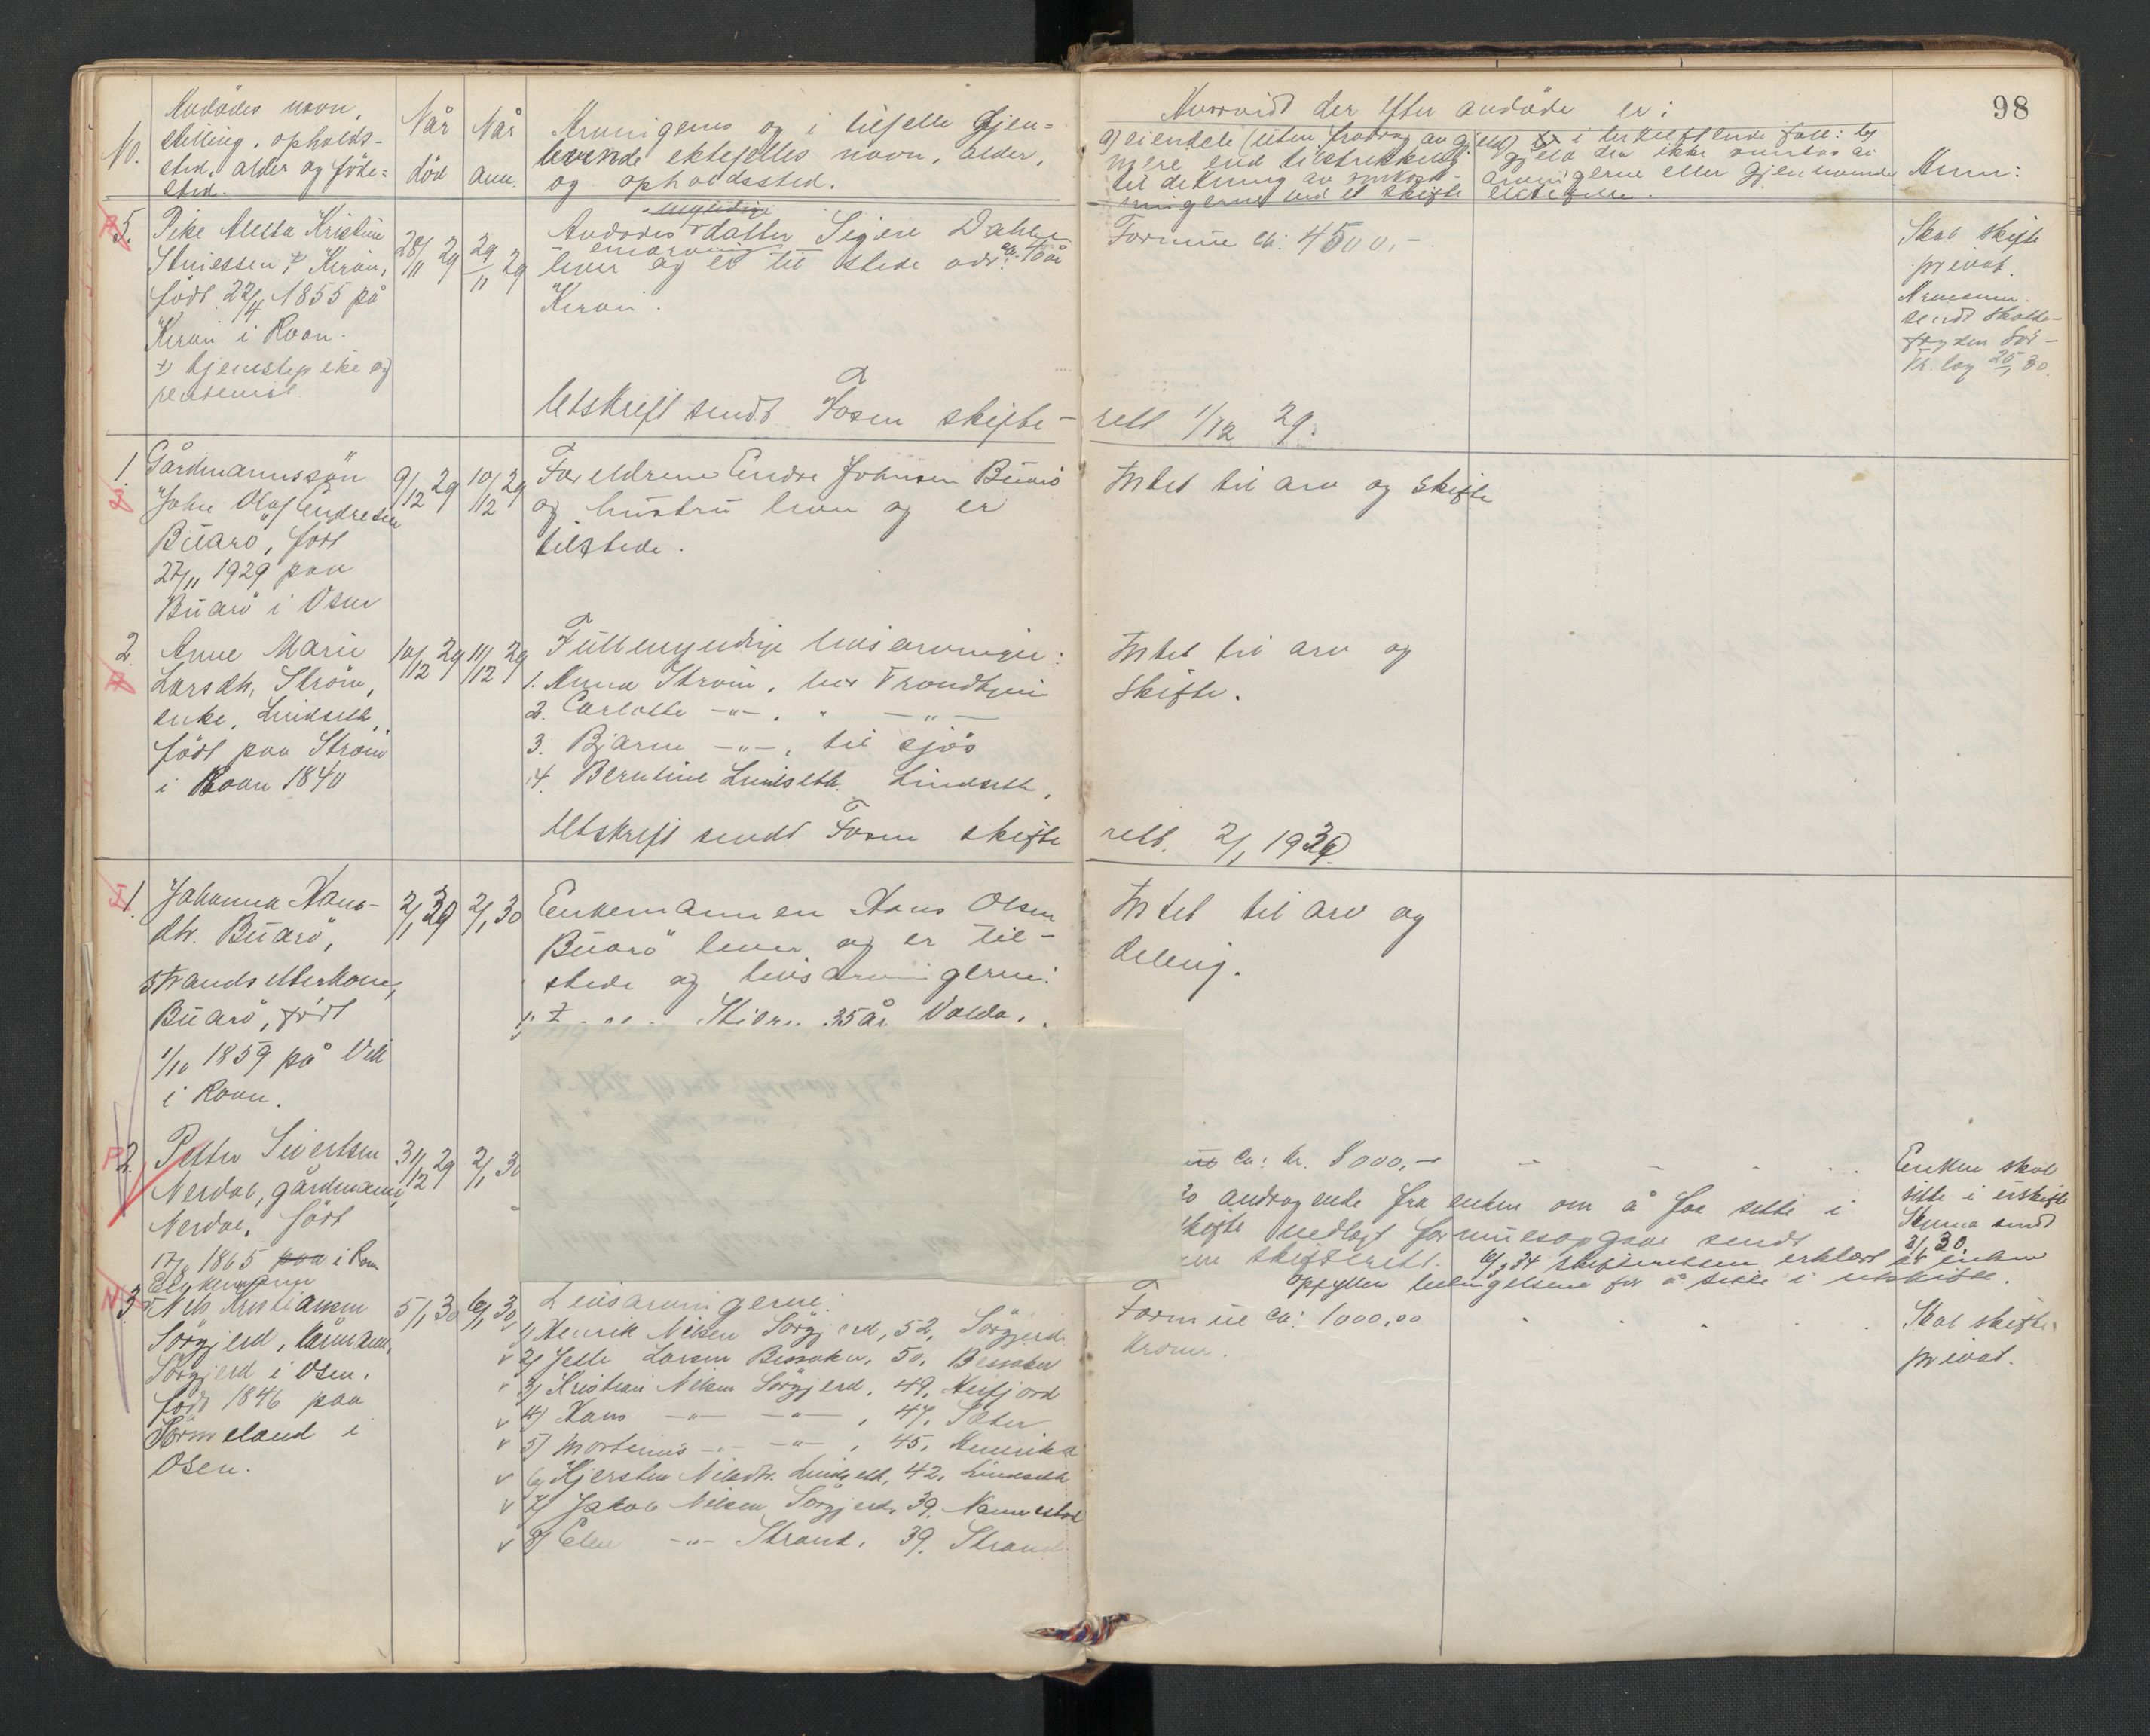 98
No.
Avdødes navn,
stilling, opholds-
sted, alder og föde-
sted.
Når
död
Når
anm.
Arvingenes og i tilfelle gjen-
levende ektefelles navn, alder,
og opholdssted.
Hvorvidt der efter avdøde er:
a) eiendele (uten fradrag av gjeld)
mere end tilstrekkelig
til dekning av omkost-
ningerne ved et skifte
i bekreftende fall: b)
gjeld der ikke overtas av
arvingerne eller gjenlevende
ektefelle.
Anm:
5.
Pike Aletta Kristine
Kiran,
född 22/4 1855 på
Kiran i Roan.
x) tjenestepike og
28/11 29
29/11 29
myndige
Avdødes datter Signe Dahle
enearving
lever og er til stede adr. ca. 40 år
Kiran.
Formue ca: 4500,-
Skal skifte
privat.
sendt skatte-
fogden Sör-
Tr.lag 25/1 30.
Utskrift sendt Fosen skifte-
rett 1/12 29.
1.
Gårdmannssøn
Johan Olaf Endresen
Buarö, född
27/11 1929 paa
Buarö i Osen
9/12 29
10/12 29
Foreldrene Endre Johnsen Buarö
og hustru lever og er
tilstede.
Intet til arv og skifte
2.
Anne Marie
Larsdtr. Ström,
enke, Lindseth,
född paa Ström
i Roan 1840
10/12 29
11/12 29
Fullmyndige livsarvinger:
1. Anna Ström, bor Trondhjem
2. Carlotte -"- , " -"-
3. Bjarne -"- , til sjøs
4. Berntine Lindseth, Lindseth.
Intet til arv og
skifte.
Utskrift sendt Fosen skifte
rett. 2/1 1930.
1.
Johanna Hans-
dtr. Buarö,
strandsitterkone,
Buarö, född
1/10 1859 på Vik
i Roan.
2/1 30
2/1 30
Enkemannen Hans Olsen
Buarö lever og er til-
stede og livsarvingerne:
35 år
Intet til arv og
deling.
2.
Petter Sivertsen
Nerdal, gårdmann,
Nerdal, född
1865 paa i Roan
31/12 29
2/1 30
ca: kr. 8000,-
andragende fra enken om å faa sitte i
skifte vedlagt formuesopgave sendt
skifterett. 6/3 34 skifteretten erklært at enken
opfyller betingelsene for å sitte i uskifte.
Enken skal
sitte i uskifte
Skjema sendt
3/6 30.
3.
Enkemann
Nils Kristiansen
Sörgjerd, kårmann,
Sörgjerd i Osen,
född 1846 paa
Hörmeland i
Osen.
5/1 30
6/1 30
Livsarvingerne:
1) Henrik Nilsen Sörgjerd, 52, Sörgjerd
v 2) Jette Larsen Bessaker, 50, Bessaker
v 3) Kristian Nilsen Sörgjerd, 49,
v 4) Hans -"- -"- , 47, Sæter
v 5) Mortinus -"- -"- , 45, Amerika
v 6) Kjersten Nilsdtr. Lindseth, 42, Lindseth
v 7) Jakob Nilsen Sörgjerd, 39,
v 8) Elen -"- Strand, 39, Strand
Formue ca: 1000,00
kroner.
Skal skifte
privat.